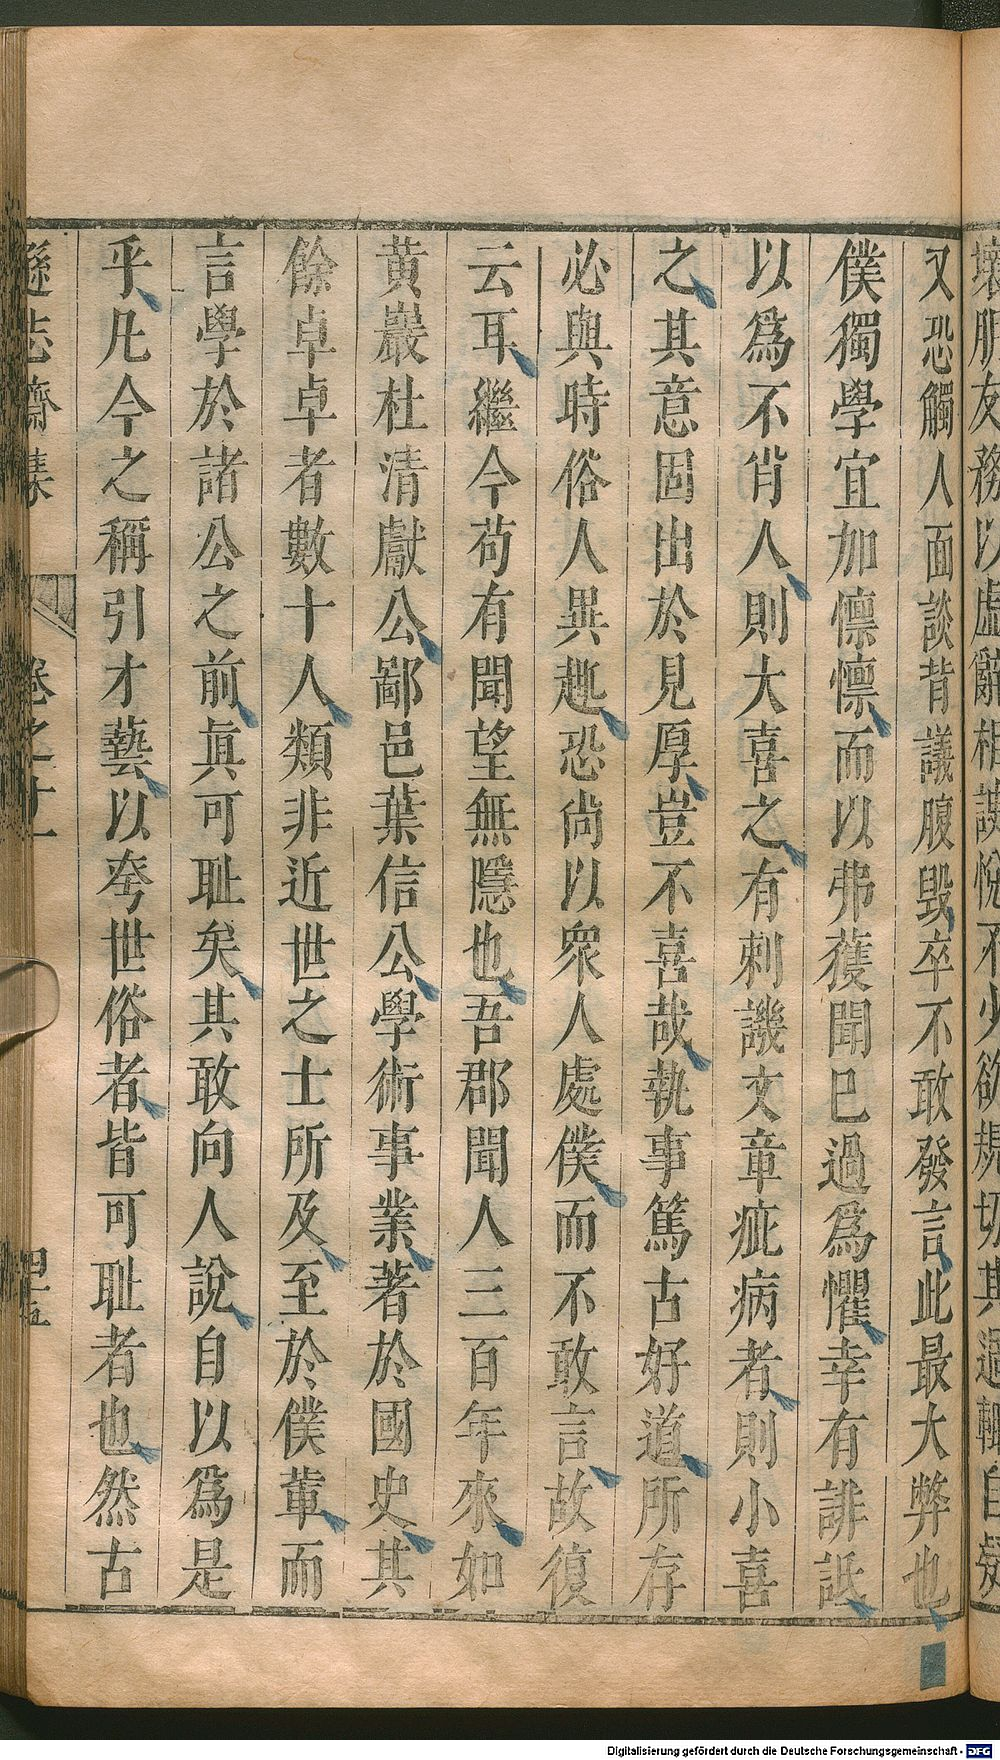 壞朋友務以虛辭相諛悅不少欲規切其過輒自疑
又恐觸人面談背議腹毀卒不敢發言此最大弊也
僕獨學宜加懍懍而以弗獲聞已過爲懼幸有誹詆
以爲不肖人則大喜之有刺譏文章疵病者則小喜
之其意固出於見厚豈不喜哉執事篤古好道所存
必與時俗人異趣恐尚以衆人處僕而不敢言故復
云耳繼今苟有聞望無隱也吾郡聞人三百年來如
黃巖杜清獻公鄙邑葉信公學術事業著於國史其
餘卓卓者數十人類非近世之士所及至於僕輩而
言學於諸公之前眞可耻矣其敢向人說自以爲是
乎凡今之稱引才藝以夸世俗者皆可耻者也然古
遜志齋集 卷之十一 四十五
Digitalisierung gefördert durch die Deutsche Forschungsgemeinschaft - DFG